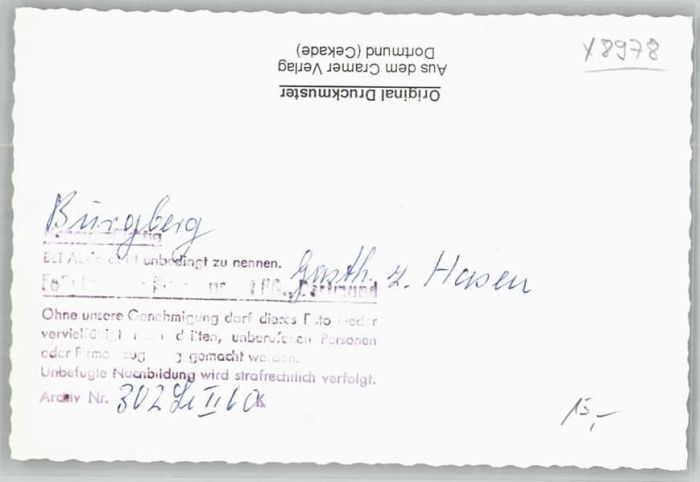 x8978
Original Druckmuster
Aus dem Cramer Verlag
Dortmund (Cekade)
Burgberg
Bei unbedingt zu nennen.
Gasth. z. Hasen
Dortmund
Ohne unsere Genehmigung darf dieses Foto weder
unberufenen Personen
oder gemacht werden.
Unbefugte Nachbildung wird strafrechtlich verfolgt.
Archiv Nr. 302
15,-